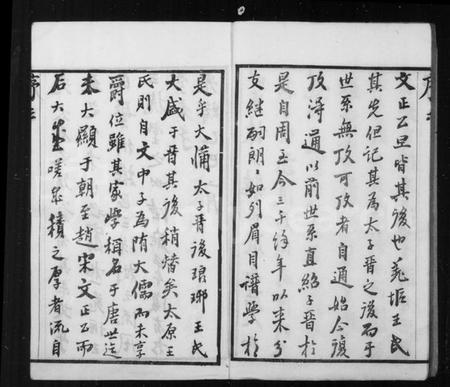 序
文正公旦皆其後也羌垢王氏
其先但記其為太子晉之後而于
世系無攷可攷者自通始今復
攷淂通以前世系直紹子晉於
是自周迄今三千餘年以来分
支継嗣朗朗如列眉目譜學於
是乎大備太子晉後琅琊王氏
大盛于晉其後稍替矣太原王
氏則自文中子為隋大儒而未享
爵位雖其家學稱名于唐世迄
未大顯于朝至趙宋文正公而
后大盛嗟乎積之厚者流自
序